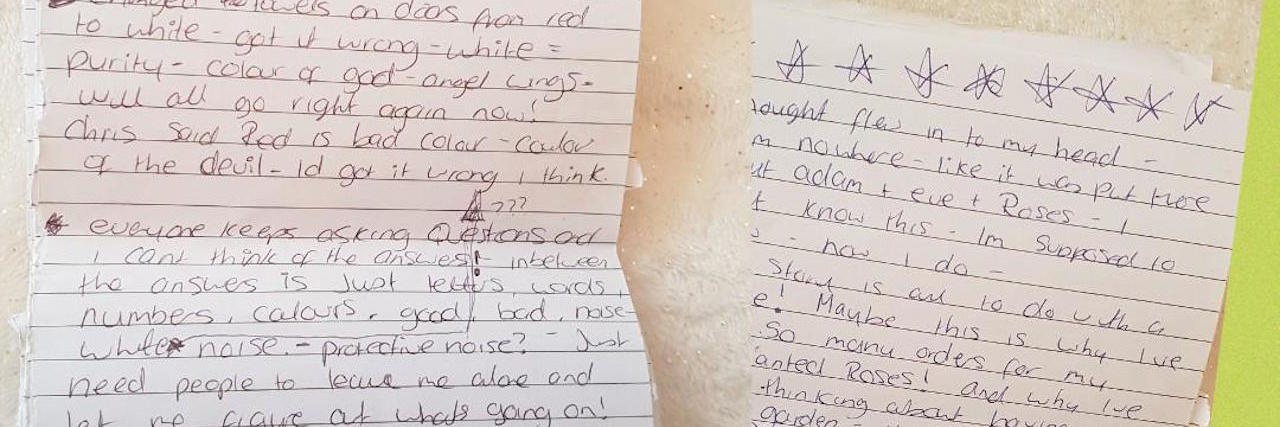 towels on doors from red
to white - got it wrong - white =
purity - colour of god - angel wings -
will all go right again now!
Chris said Red is bad colour - coulour
of the devil - Id got it wrong I think.
???
everyone keeps asking Questions and
I cant think of the answers! - inbetween
the answers is Just letters, words,
numbers, colours, good, bad, noise-
white noise. - protective noise? - Just
need people to leave me alone and
let me figure out whats going on!
hought flew in to my head -
m nowhere - like it was put there
ut adam + eve + Roses - I
t know this - Im Supposed to
- now I do -
is all to do with a
e! Maybe this is why Ive
So many orders for my
anted Roses! and why Ive
thinking about having
garden